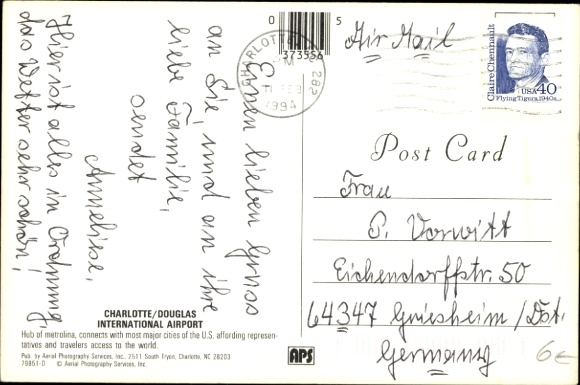 Einen lieben Gruss
an Sie, und an ihre
liebe Familie,
sendet
Anneliese.
Hier ist alles in Ordnung,
das Wetter sehr schön!
CHARLOTTE/DOUGLAS
INTERNATIONAL AIRPORT
Hub of metrolina, connects with most major cities of the U.S. affording represen-
tatives and travelers access to the world.
Pub. by Aerial Photography Services, Inc. 2511 South Tryon, Charlotte, NC 28203
79851-D © Aerial Photography Services, Inc.
0 5
373556
CHARLOTTE
PM
FEB
1994
282
APS
Air Mail
Claire Chennault
USA 40
Flying Tigers, 1940s
Post Card
Frau
P. Vorwitt
Eichendorffstr. 50
64347 Griesheim / Dst.
Germany
6€